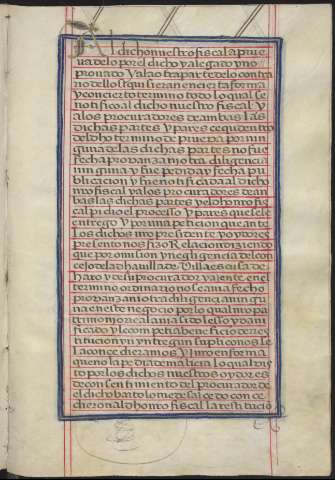 Al dicho nuestro fiscal aprue
va de lo por el dicho y alegado y no
provado y a la otra parte de lo contra
rio de llo si quisieran en cierta forma
y concierto termino todo lo qual se
notifico al dicho nuestro fiscal y
a los procuradores de ambas las
dichas partes y pareçe que dentro
del dho termino de prueva por nin
guna de las dichas partes no fue
fecha provanza ni otra diligencia
ninguna y fue pedida y fecha pu
blicacion y fue notificada al dicho
nro fiscal y a los procuradores de am
bas las dichas partes y el dho nro fis
cal pidio el processo y pareçe que se le
entrego y por una peticion que ante
los dichos nro presidente y oydores
presento nos hizo Relacion diziendo
que por omision y negligencia del con
cejo de la dha villa de Villaescusa de
haro y de su procurador y a lente en el
termino ordinario no se avia fecho
provanza ni otra diligencia ningu
na en este negocio por lo qual nro pa
trimonio real avia sido lesso y dani
ficado y le competia beneficio de res
titucion yn yntregun suplico nos se
la concedieramos y juro en forma
que no la pedia de maliçia lo qual vis
to por los dichos nuestros oydores
de consentimiento del procurador de
el dicho bartolome de salcedo conce
dieron al dho nro fiscal la restituçio